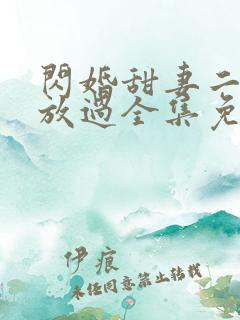 閃婚甜妻二
放過全集免
伊痕
未经同意禁止转载